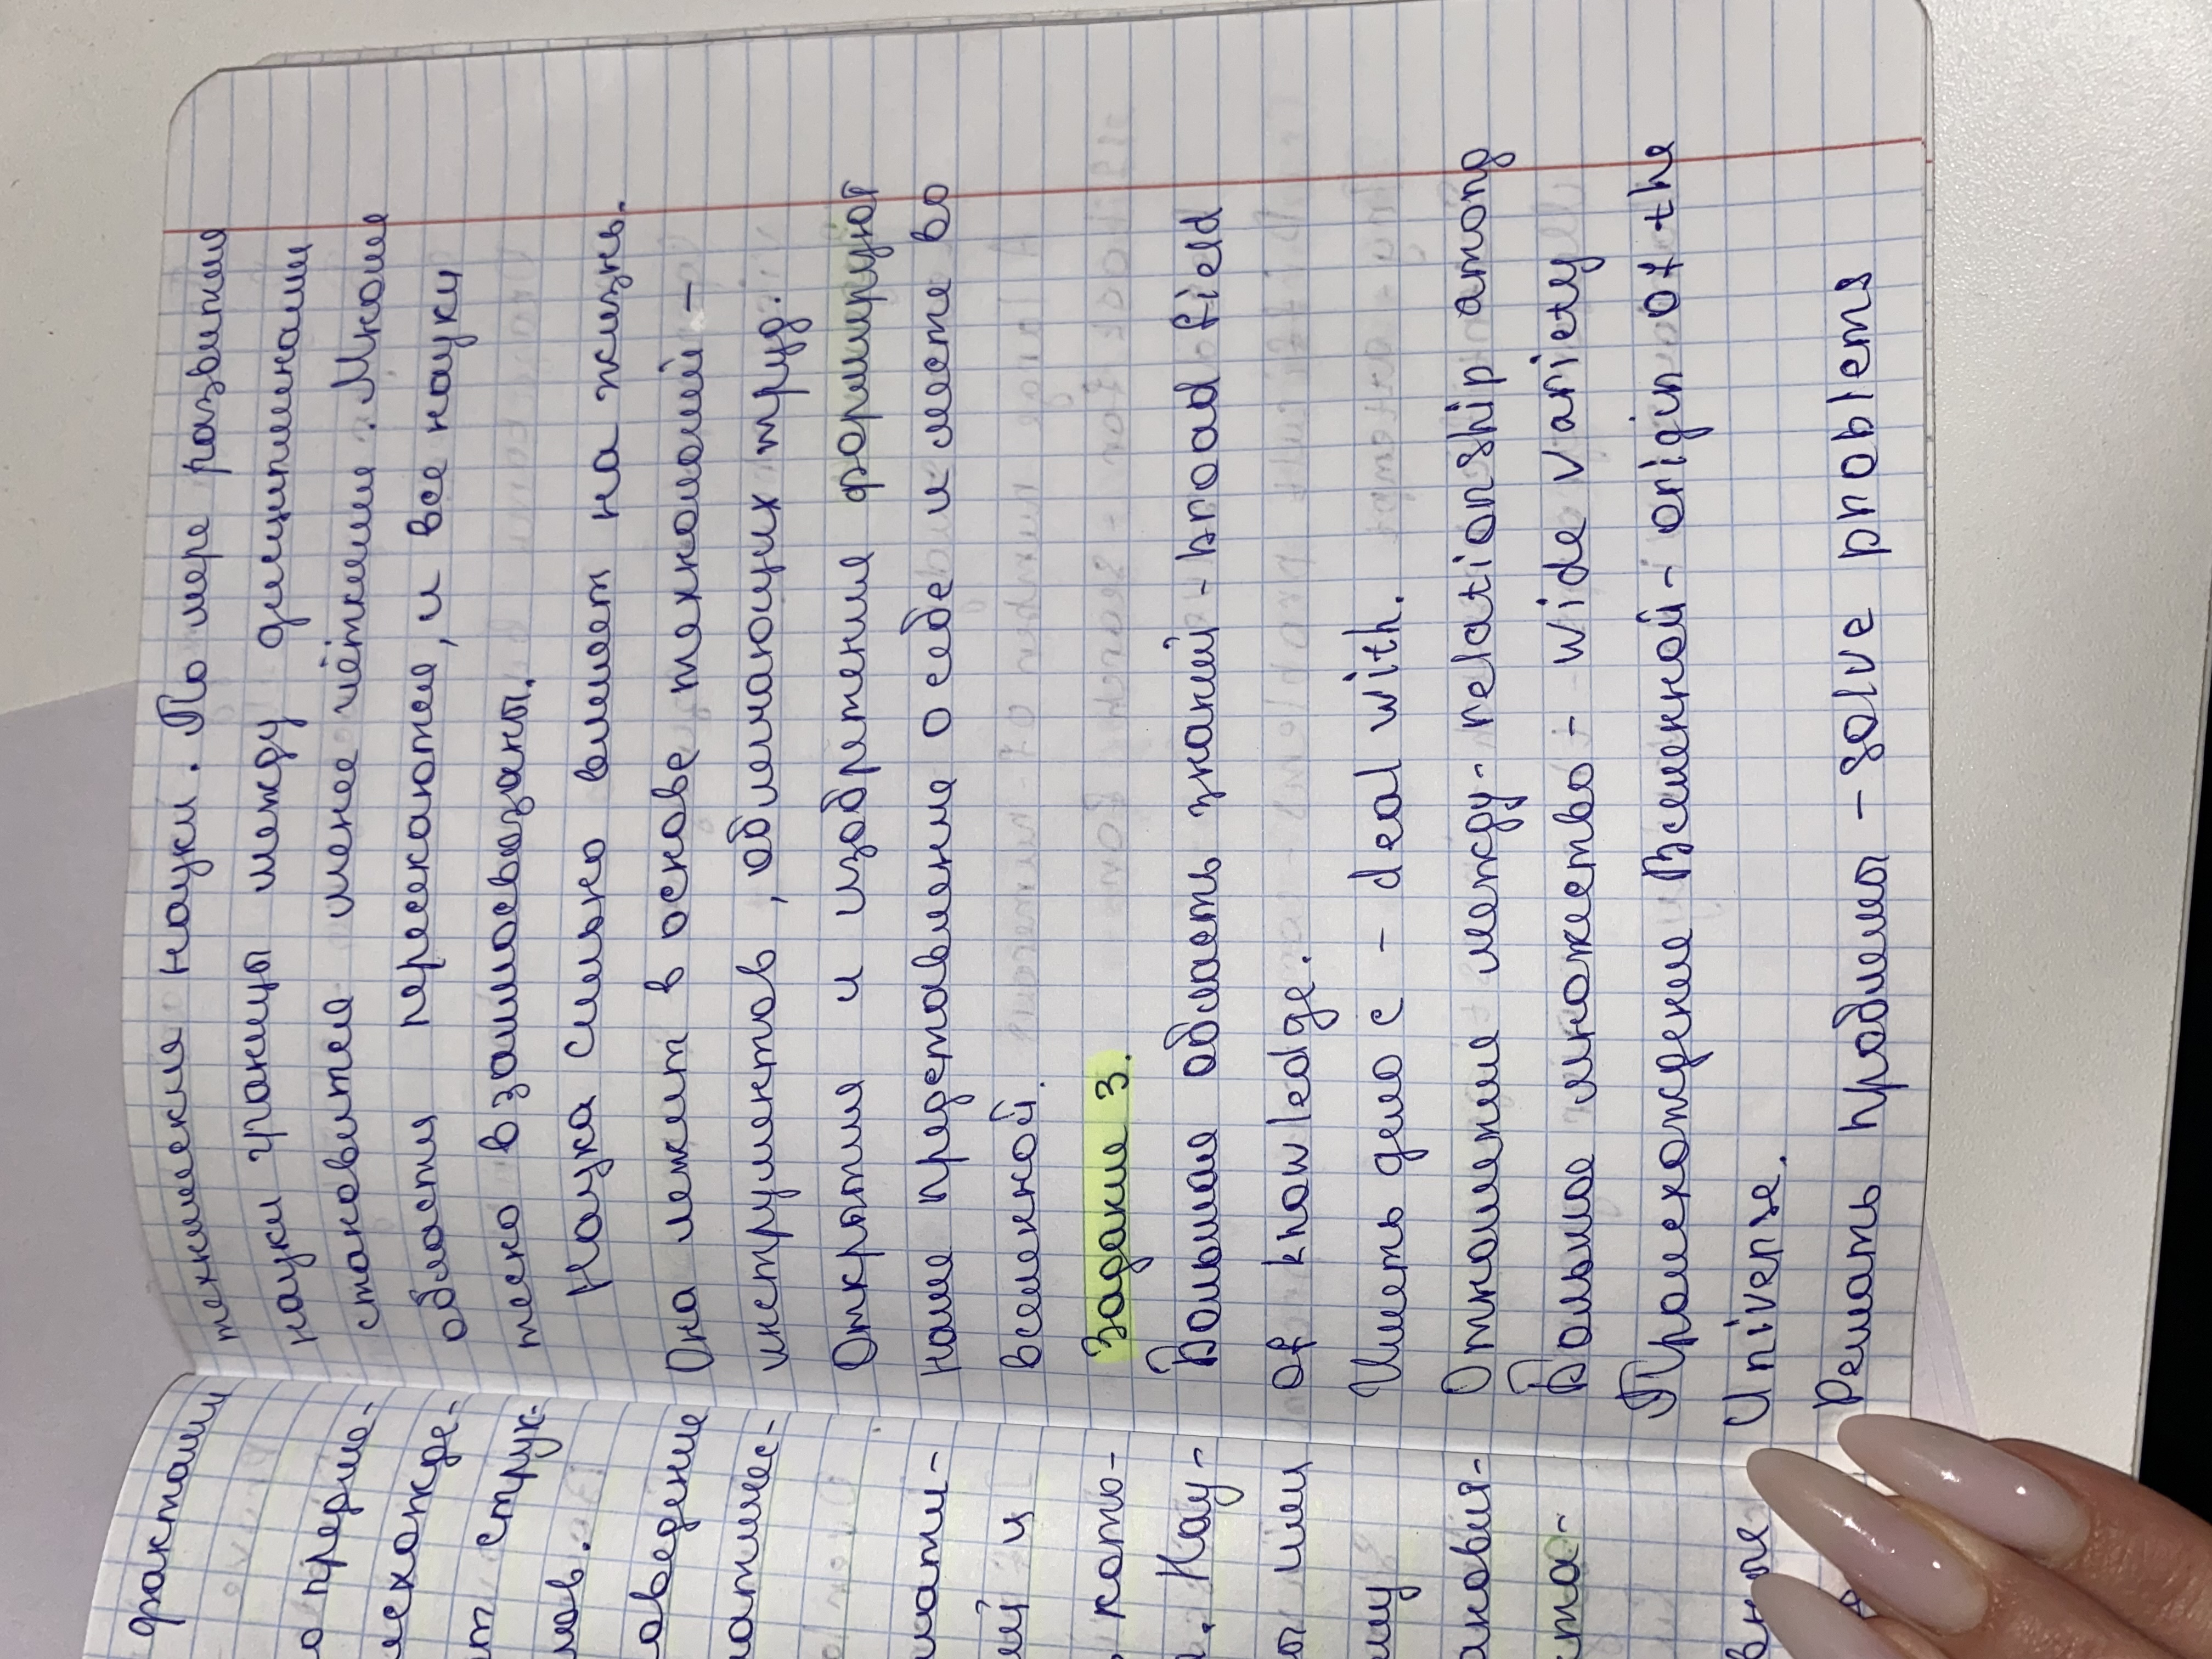 фактами
оприро-
исхожде-
ют струк-
лов.
поведение
матичес-
мати-
ий и
кото-
. Нау-
ы или
ому
анови-
ста-
вные
технических науки. По мере развития
науки границы между дисциплинами
становится менее чёткими. Многие
области пересекаются, и все науки
тесно взаимосвязаны.
Наука сильно влияет на жизнь.
Она лежит в основе технологий -
инструментов, облегчающих труд.
Открытия и изобретения формируют
наше представление о себе и месте во
вселенной.
Задание 3.
Большая область знаний - broad field
of knowledge.
Иметь дело с - deal with.
Отношения между - relationship among
Большое множество - wide variety
Происхождение Вселенной - origin of the
Universe.
Решать проблемы - solve problems